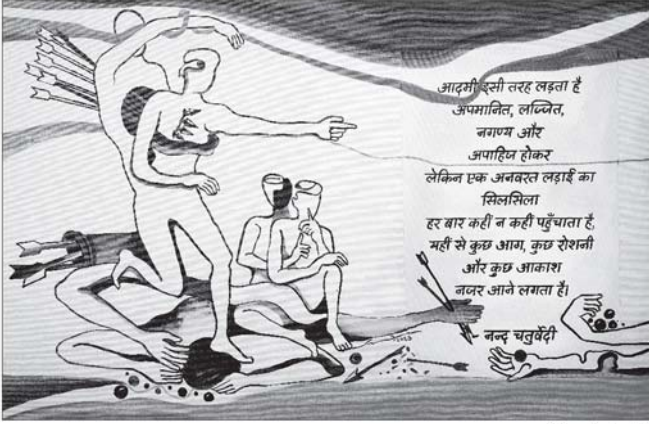 आदमी इसी तरह लड़ता है
अपमानित, लज्जित,
नगण्य और
अपाहिज होकर
लेकिन एक अनवरत लड़ाई का
सिलसिला
हर बार कहीं न कहीं पहुँचाता है,
यहीं से कुछ आग, कुछ रोशनी
और कुछ आकाश
नजर आने लगता है।
- नन्द चतुर्वेदी